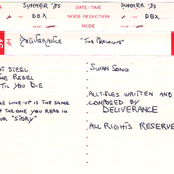 SUMMER '85
DATE
SUMMER '85
DBX
NOISE REDUCTION
DBX
MODE
DELIVERANCE "THE PROLOGUE"
T STEEL
REBEL
TIL YOU DIE
SWAN SONG
LINE-UP IS THE SAME
OF THE ONE YOU READ IN
OUR "STORY"
ALL TITLES WRITTEN AND
COMPOSED BY
DELIVERANCE
ALL RIGHTS RESERVE